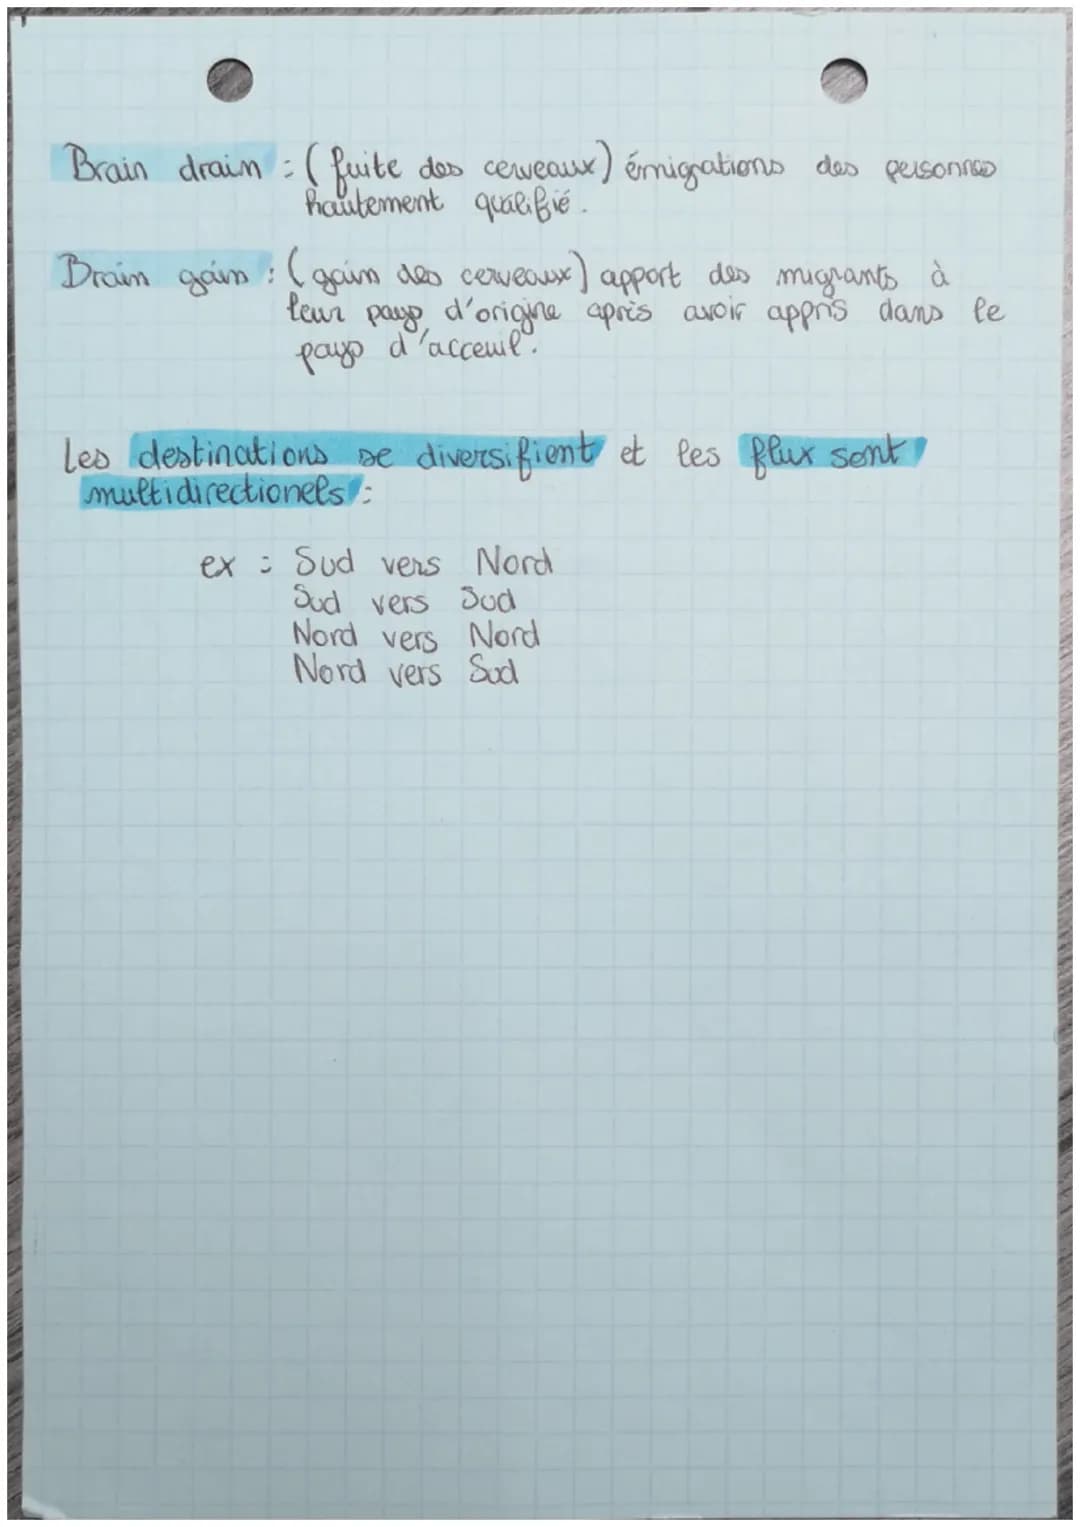 Brain drain : (fuite des cerveaux) émigrations des personnes
hautement qualifié.
Brain gain : (gain des cerveaux) apport des migrants à
leur pays d'origine après avoir appris dans le
pays d'acceuil.
Les destinations se diversifient et les flux sont
multidirectionels :
ex : Sud vers Nord
Sud vers Sud
Nord vers Nord
Nord vers Sud